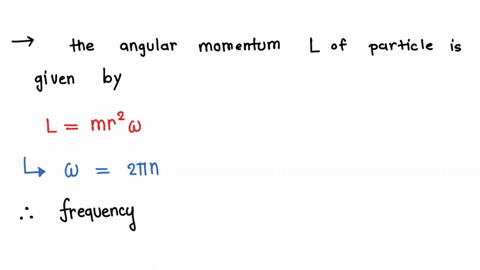 → the angular momentum L of particle is
given by
L = mr²ω
↳ ω = 2πn
∴ frequency